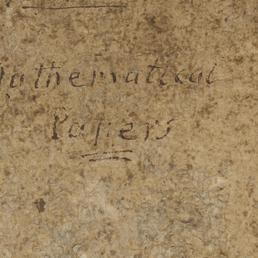 Mathematical
Papers